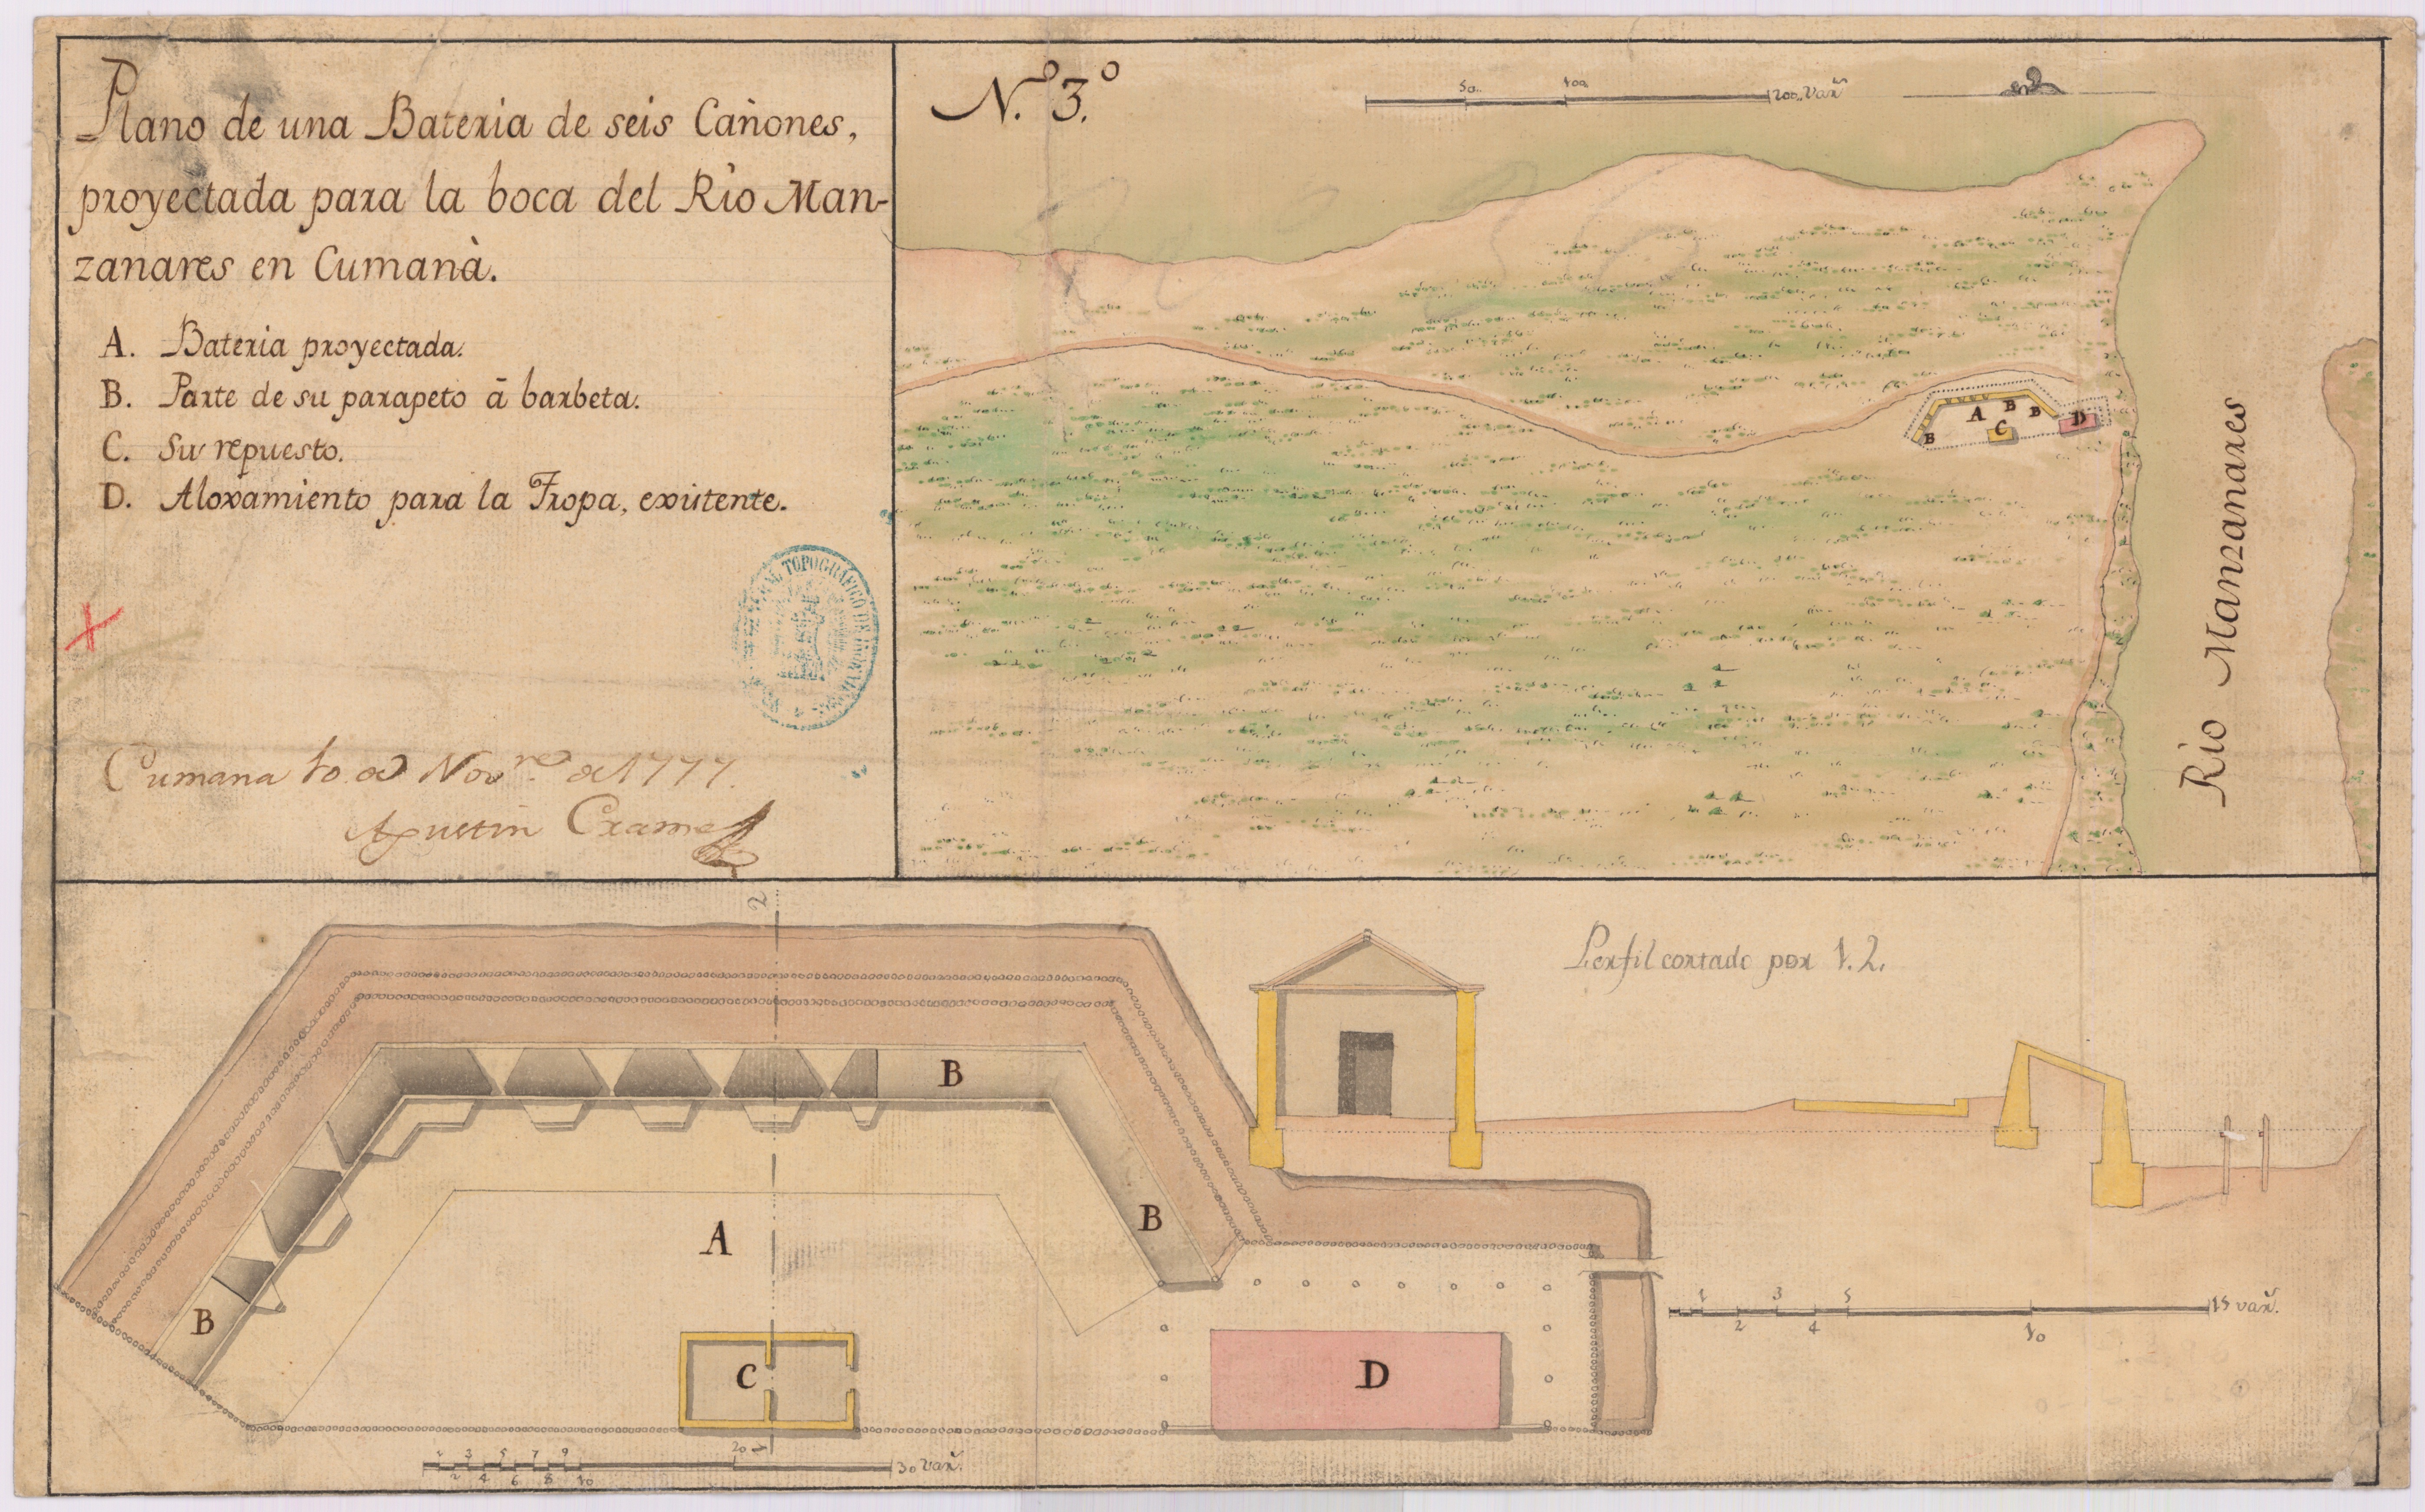 Plano de una Bateria de seis Cañones,
proyectada para la boca del Rio Man-
zanares en Cumanà.
A. Bateria proyectada.
B. Parte de su parapeto à barbeta.
C. Su repuesto.
D. Aloxamiento para la Tropa, existente.
TOPOGRAFICO DE
Cumana 10 de Novre de 1777.
Agustin Cramer
N.º 3.º
50.. 100. 200.. Vars
A B B B C D
Rio Manzanares
2
B
B
A
B
C
D
1
1 3 5 7 9 20 30 vars.
2 4 6 8 10
Perfil cortado por 1.2.
1 3 5 15 vars.
2 4 10